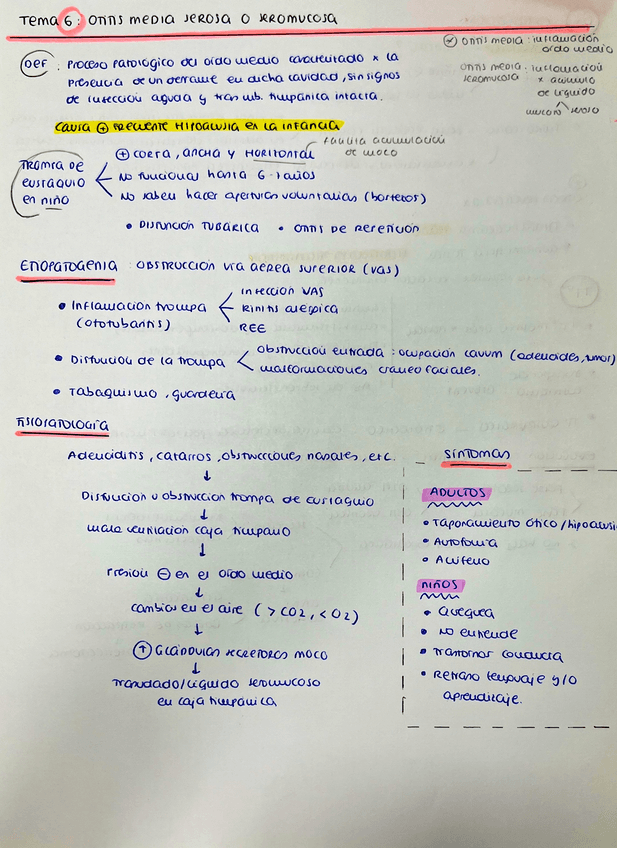 TEMA 6: OTITIS MEDIA SEROSA O SEROMUCOSA
OTITIS MEDIA: INFLAMACIÓN
OÍDO MEDIO
OTITIS MEDIA SEROMUCOSA: INFLAMACIÓN
x ACÚMULO
DE LÍQUIDO
MUCOSO SEROSO
DEF: PROCESO PATOLÓGICO DEL OÍDO MEDIO CARACTERIZADO x LA
PRESENCIA DE UN DERRAME EN DICHA CAVIDAD, SIN SIGNOS
DE INFECCIÓN AGUDA Y TRAS MB. TIMPÁNICA INTACTA.
CAUSA + FRECUENTE HIPOACUSIA EN LA INFANCIA
FACILITA ACUMULACIÓN
DE MOCO
TROMPA DE
EUSTAQUIO
EN NIÑO
+ CORTA, ANCHA Y HORIZONTAL
NO FUNCIONAL HASTA 6-7 AÑOS
NO SABEN HACER APERTURAS VOLUNTARIAS (BOSTEZOS)
• DISFUNCIÓN TUBÁRICA • OTITIS DE REPETICIÓN
ETIOPATOGENIA: OBSTRUCCIÓN VÍA AÉREA SUPERIOR (VAS)
• INFLAMACIÓN TROMPA
(OTOTUBARITIS)
INFECCIÓN VAS
RINITIS ALÉRGICA
RGE
• DISFUNCIÓN DE LA TROMPA
OBSTRUCCIÓN ENTRADA: OCUPACIÓN CAVUM (ADENOIDES, TUMOR)
MALFORMACIONES CRANEOFACIALES.
• TABAQUISMO, GUARDERÍA
FISIOPATOLOGÍA
ADENOIDITIS, CATARROS, OBSTRUCCIONES NASALES, ETC.
↓
DISFUNCIÓN U OBSTRUCCIÓN TROMPA DE EUSTAQUIO
↓
MALA VENTILACIÓN CAJA TÍMPANO
↓
PRESIÓN ⊖ EN EL OÍDO MEDIO
↓
CAMBIOS EN EL AIRE (> CO2, < O2)
↓
⊕ GLÁNDULAS SECRETORAS MOCO
↓
TRASUDADO/LÍQUIDO SEROMUCOSO
EN CAJA TIMPÁNICA
SÍNTOMAS
ADULTOS
• TAPONAMIENTO ÓTICO/HIPOACUSIA
• AUTOFONÍA
• ACÚFENO
NIÑOS
• OTALGIA
• NO ENTIENDE
• TRASTORNOS CONDUCTA
• RETRASO LENGUAJE Y/O
APRENDIZAJE.